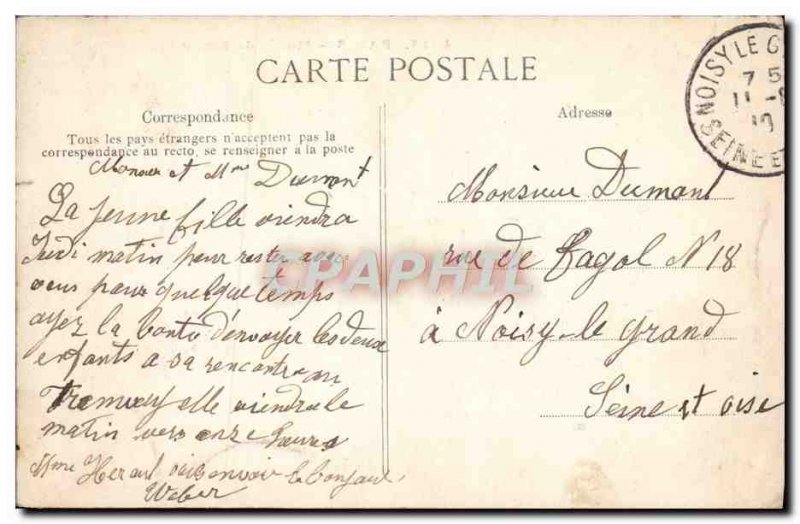 CARTE POSTALE
Correspondance
Tous les pays étrangers n'acceptent pas la
correspondance au recto, se renseigner a la poste
Adresse
NOISY LE G
7 5
11 -
10
SEINE ET
Monsieur et Mme Dumont
La jeune fille viendra
Jeudi matin pour rester avec
vous pour quelque temps
ayez la bonté d'envoyer les deux
enfants a sa rencontre au
Tramway elle viendra le
matin vers onze heures
Mme Heraut vous envoie le bonjour
Weber
Monsieur Dumont
rue de N 18
à Noisy-le grand
Seine et oise
CPAPHIL